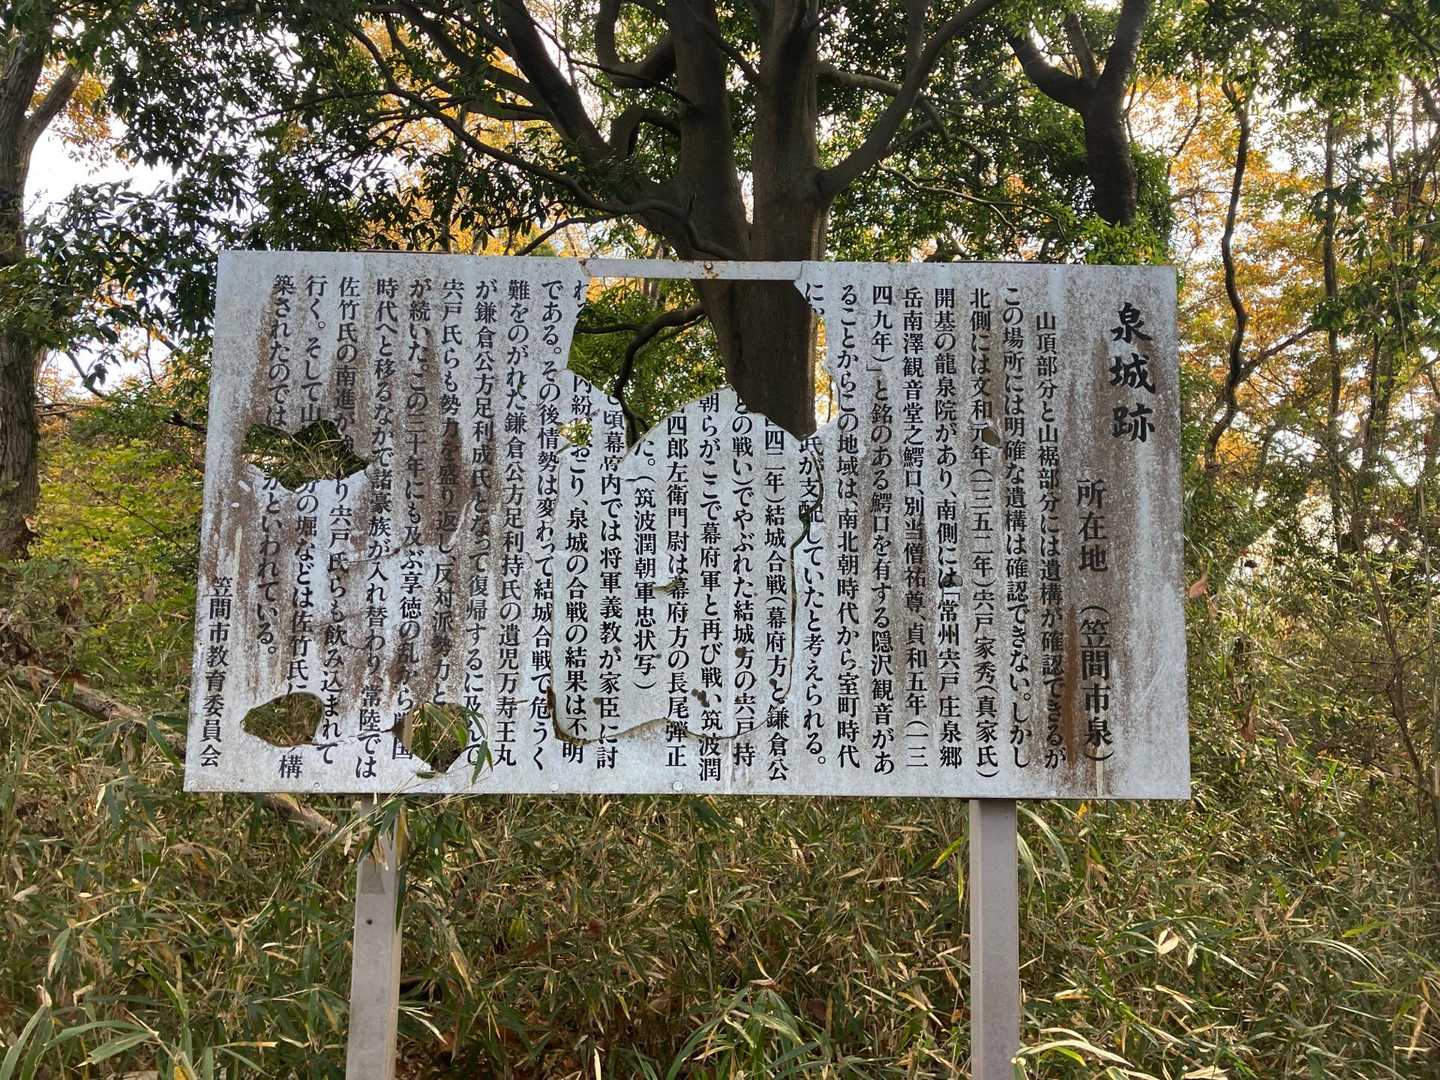 泉城跡
所在地　（笠間市泉）
山頂部分と山裾部分には遺構が確認できるが
この場所には明確な遺構は確認できない。しかし
北側には文和元年（一三五二年）宍戸家秀（真家氏）
開基の龍泉院があり、南側には「常州宍戸庄泉郷
岳南澤観音堂之鰐口、別当僧祐尊、貞和五年（一三
四九年）」と銘のある鰐口を有する隠沢観音があ
ることからこの地域は、南北朝時代から室町時代
に
氏が支配していたと考えられる。
四二年）結城合戦（幕府方と鎌倉公
との戦い）でやぶれた結城方の宍戸持
朝らがここで幕府軍と再び戦い、筑波潤
四郎左衛門尉は幕府方の長尾弾正
た。（筑波潤朝軍忠状写）
頃幕府内では将軍義教が家臣に討
れ
内紛がおこり、泉城の合戦の結果は不明
である。その後情勢は変わって結城合戦で危うく
難をのがれた鎌倉公方足利持氏の遺児万寿王丸
が鎌倉公方足利成氏となって復帰するに及んで
宍戸氏らも勢力を盛り返し、反対派勢力と
が続いた。この三十年にも及ぶ享徳の乱から戦国
時代へと移るなかで諸豪族が入れ替わり、常陸では
佐竹氏の南進が
り宍戸氏らも飲み込まれて
行く。そして山
分の堀などは佐竹氏に
構
築されたのでは
かといわれている。
笠間市教育委員会